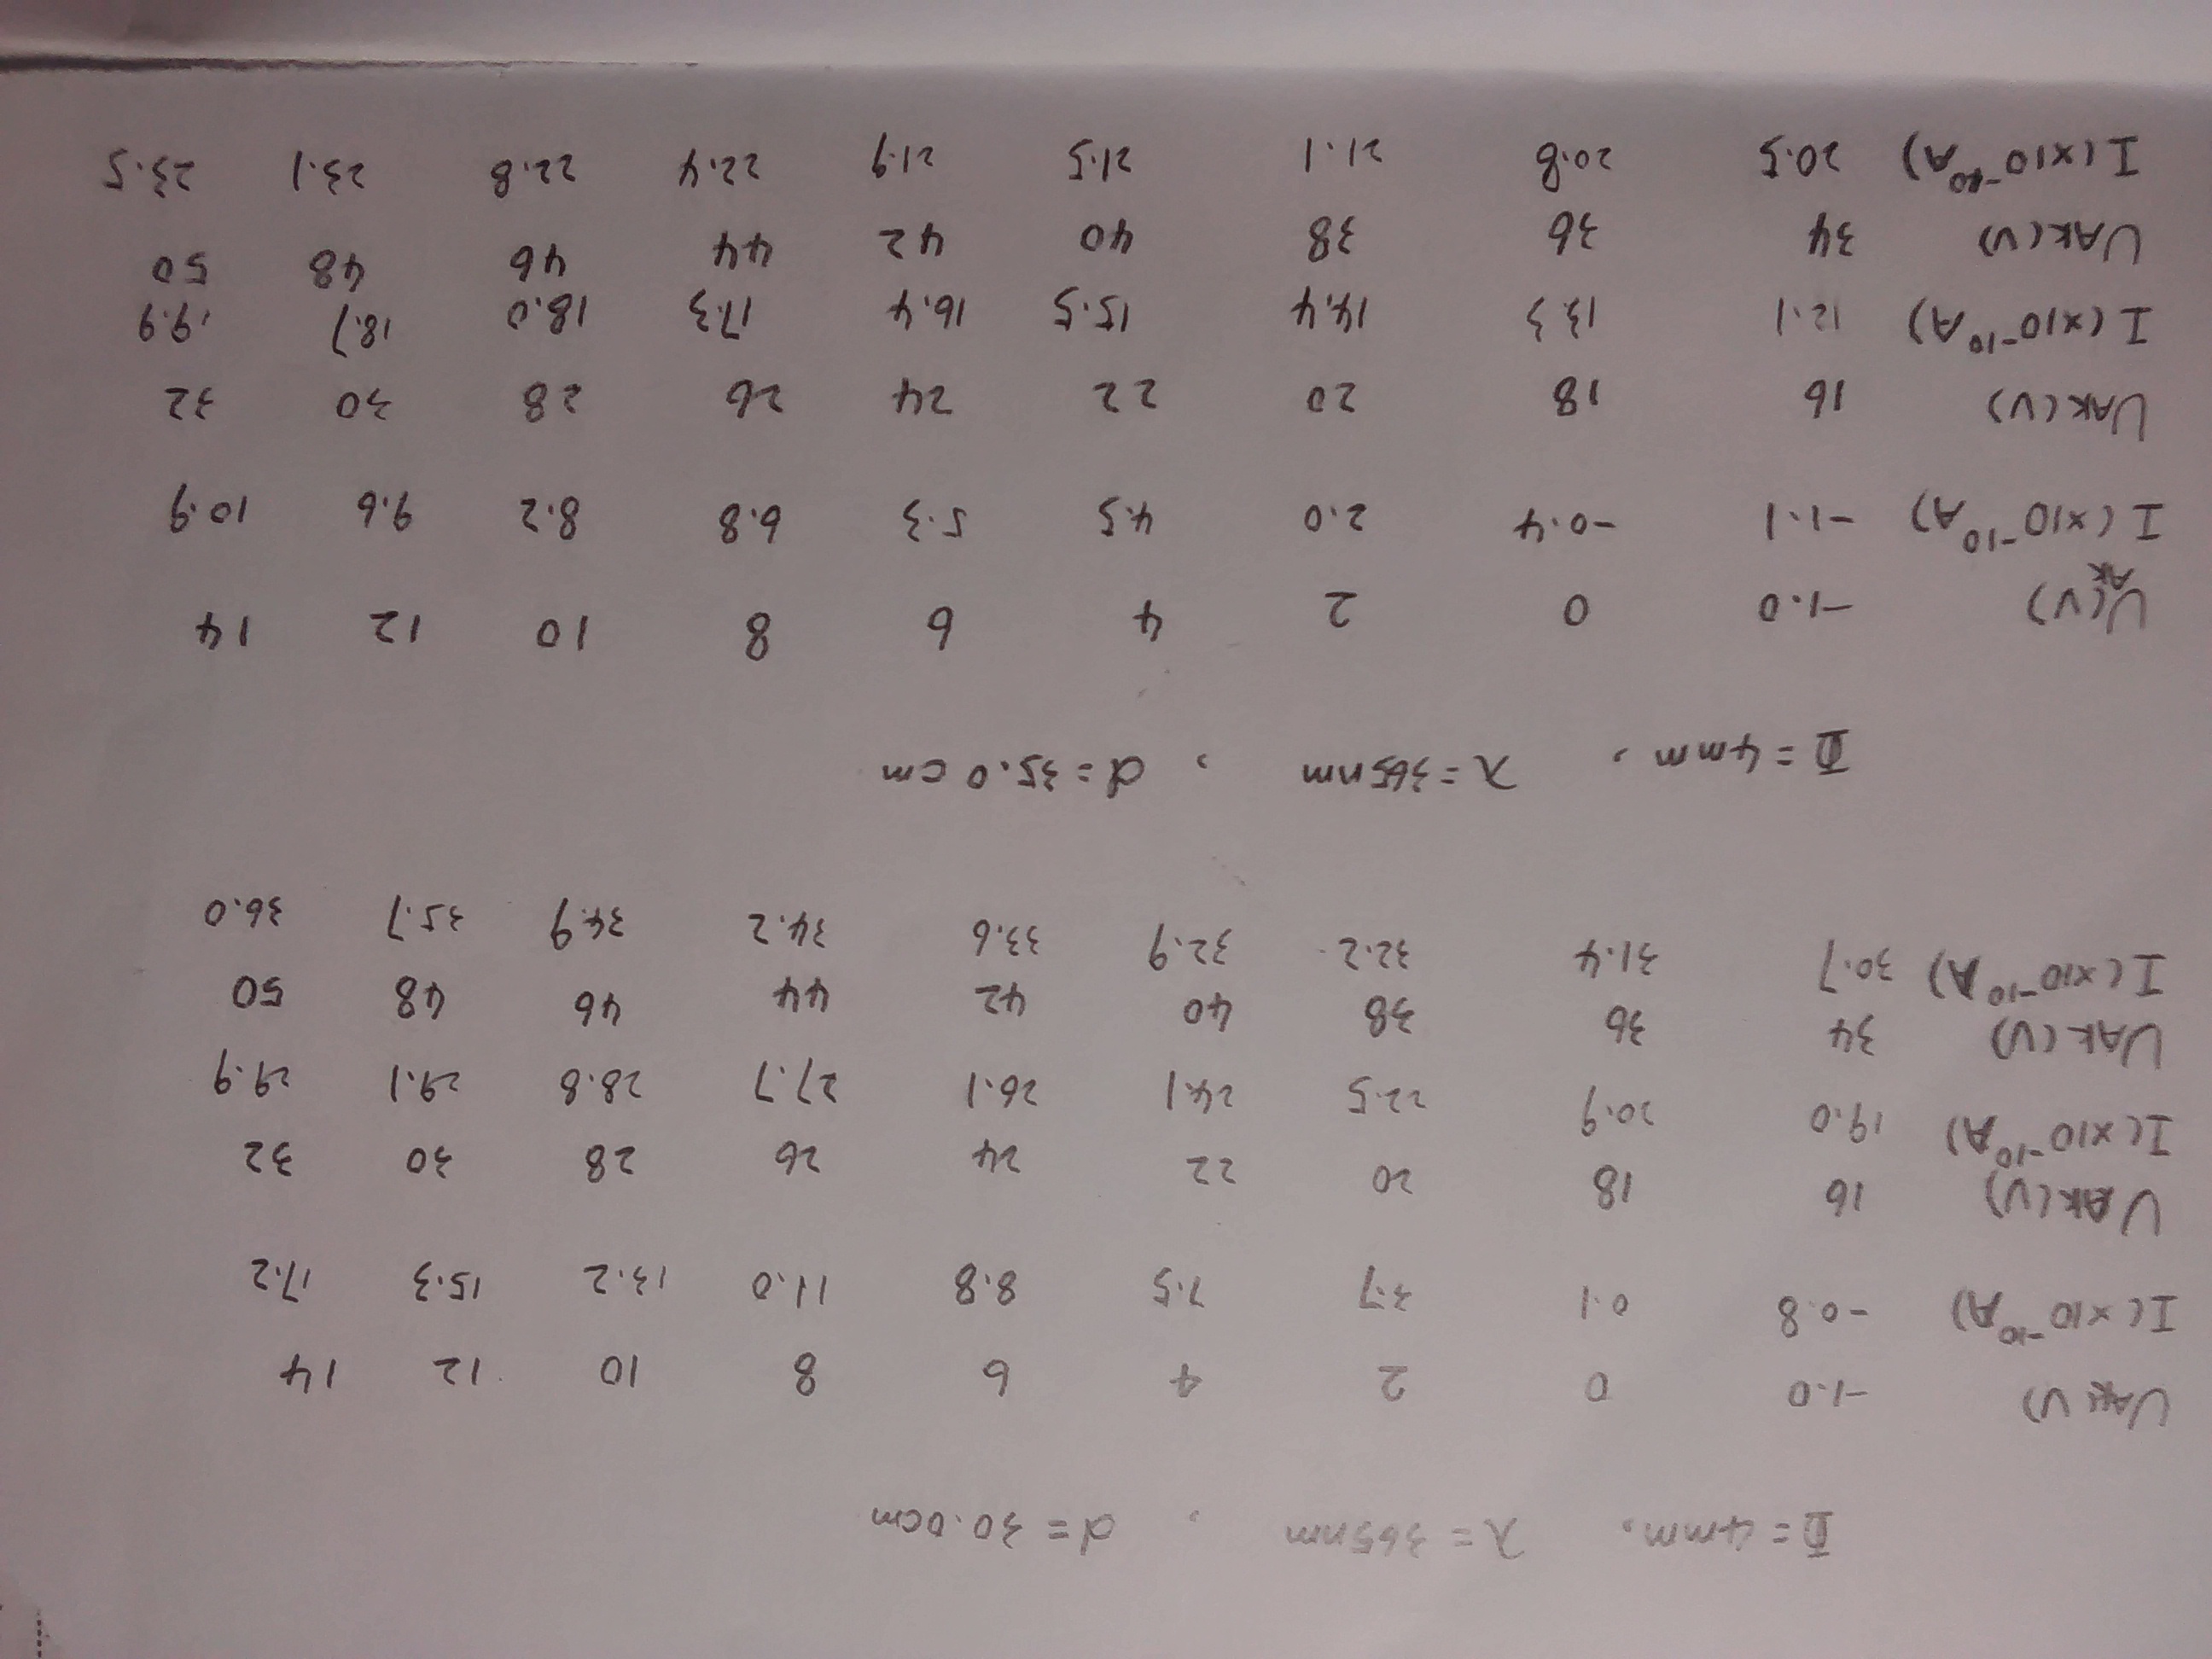 Φ=4mm, λ=365nm, d=30.0cm
UAK(V) -1.0 0 2 4 6 8 10 12 14
I(×10⁻¹⁰A) -0.8 0.1 3.7 7.5 8.8 11.0 13.2 15.3 17.2
UAK(V) 16 18 20 22 24 26 28 30 32
I(×10⁻¹⁰A) 19.0 20.9 22.5 24.1 26.1 27.7 28.8 29.1 29.9
UAK(V) 34 36 38 40 42 44 46 48 50
I(×10⁻¹⁰A) 30.7 31.4 32.2 32.9 33.6 34.2 34.9 35.7 36.0
Φ=4mm, λ=365nm, d=35.0cm
UAK(V) -1.0 0 2 4 6 8 10 12 14
I(×10⁻¹⁰A) -1.1 -0.4 2.0 4.5 5.3 6.8 8.2 9.6 10.9
UAK(V) 16 18 20 22 24 26 28 30 32
I(×10⁻¹⁰A) 12.1 13.3 14.4 15.5 16.4 17.3 18.0 18.7 19.9
UAK(V) 34 36 38 40 42 44 46 48 50
I(×10⁻¹⁰A) 20.5 20.8 21.1 21.5 21.9 22.4 22.8 23.1 23.5